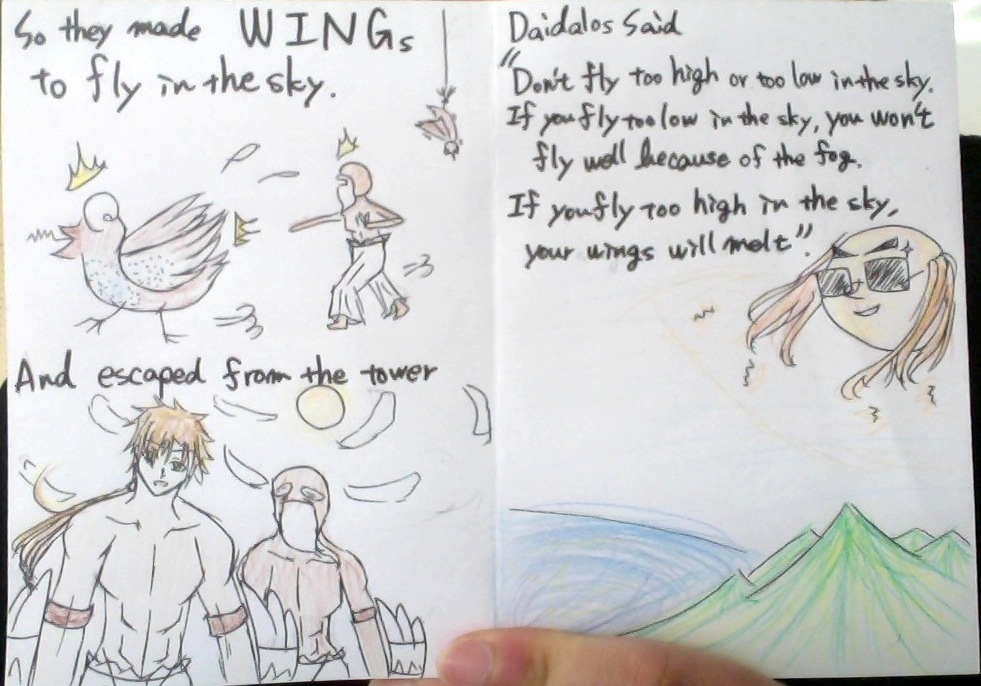 So they made WINGs
to fly in the sky.
And escaped from the tower
Daidalos Said
"Don't fly too high or too low in the sky.
If you fly too low in the sky, you won't
fly well because of the fog.
If you fly too high in the sky,
your wings will melt".